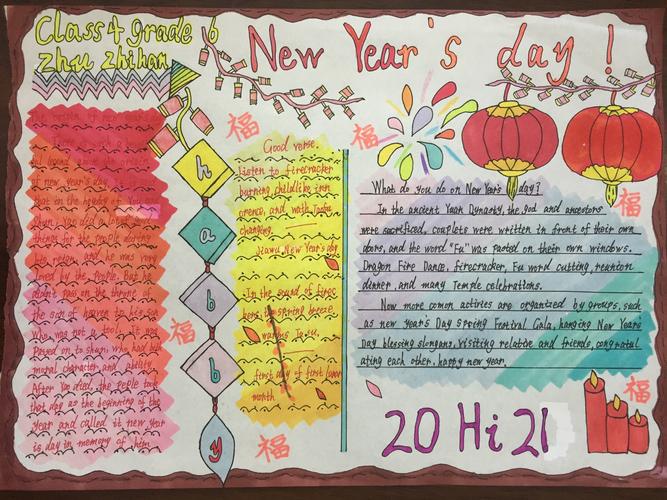 Class 4 grade 6
Zhu Zhihan
New Year's day!
of new year's day
that in the
Yao did a lot of good
things for the people during
his reign, and he was very
loved by the people. But he
didn't pass on the throne of
the son of heaven to his son
who was not a tool. It was
Passed on to shun, who had both
moral character and ability.
After Yao died, the people took
that day as the beginning of the
year and called it new year
is day in memory of him
h
a
b
b
y
福
福
福
福
福
福
Good verse.
listen to firecracker
burning, childlike inn
ocence, and watch
changing.
New Year's day
In the sound of firec
spring breeze
first day of first lunar
month
What do you do on New Year's day?
In the ancient Yuan Dynasty, the god and ancestors
were sacrificed, couplets were written in front of their own
doors, and the word "Fu" was pasted on their own windows.
Dragon Fire Dance, firecracker, Fu word cutting, reunion
dinner, and many Temple celebrations.
Now more comon activies are organized by groups, such
as new year's Day Spring Festival Gala, hanging New Year's
Day blessing slongans, visiting relative and friends, congratul
ating each other, happy new year.
20 Hi 21